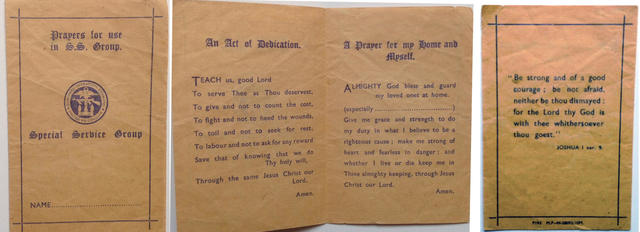 Prayers for use
in S.S. Group.
Special Service Group
NAME
An Act of Dedication.
TEACH us, good Lord
To serve Thee as Thou deservest,
To give and not to count the cost,
To fight and not to heed the wounds,
To toil and not to seek for rest,
To labour and not to ask for any reward
Save that of knowing that we do
Thy holy will,
Through the same Jesus Christ our
Lord.
Amen.
A Prayer for my Home and
Myself.
ALMIGHTY God bless and guard
my loved ones at home.
(especially..............................)
Give me grace and strength to do
my duty in what I believe to be a
righteous cause; make me strong of
heart and fearless in danger: and
whether I live or die keep me in
Thine almighty keeping, through Jesus
Christ our Lord.
Amen.
"Be strong and of a good
courage; be not afraid,
neither be thou dismayed:
for the Lord thy God is
with thee whithersoever
thou goest."
JOSHUA I ver. 9.